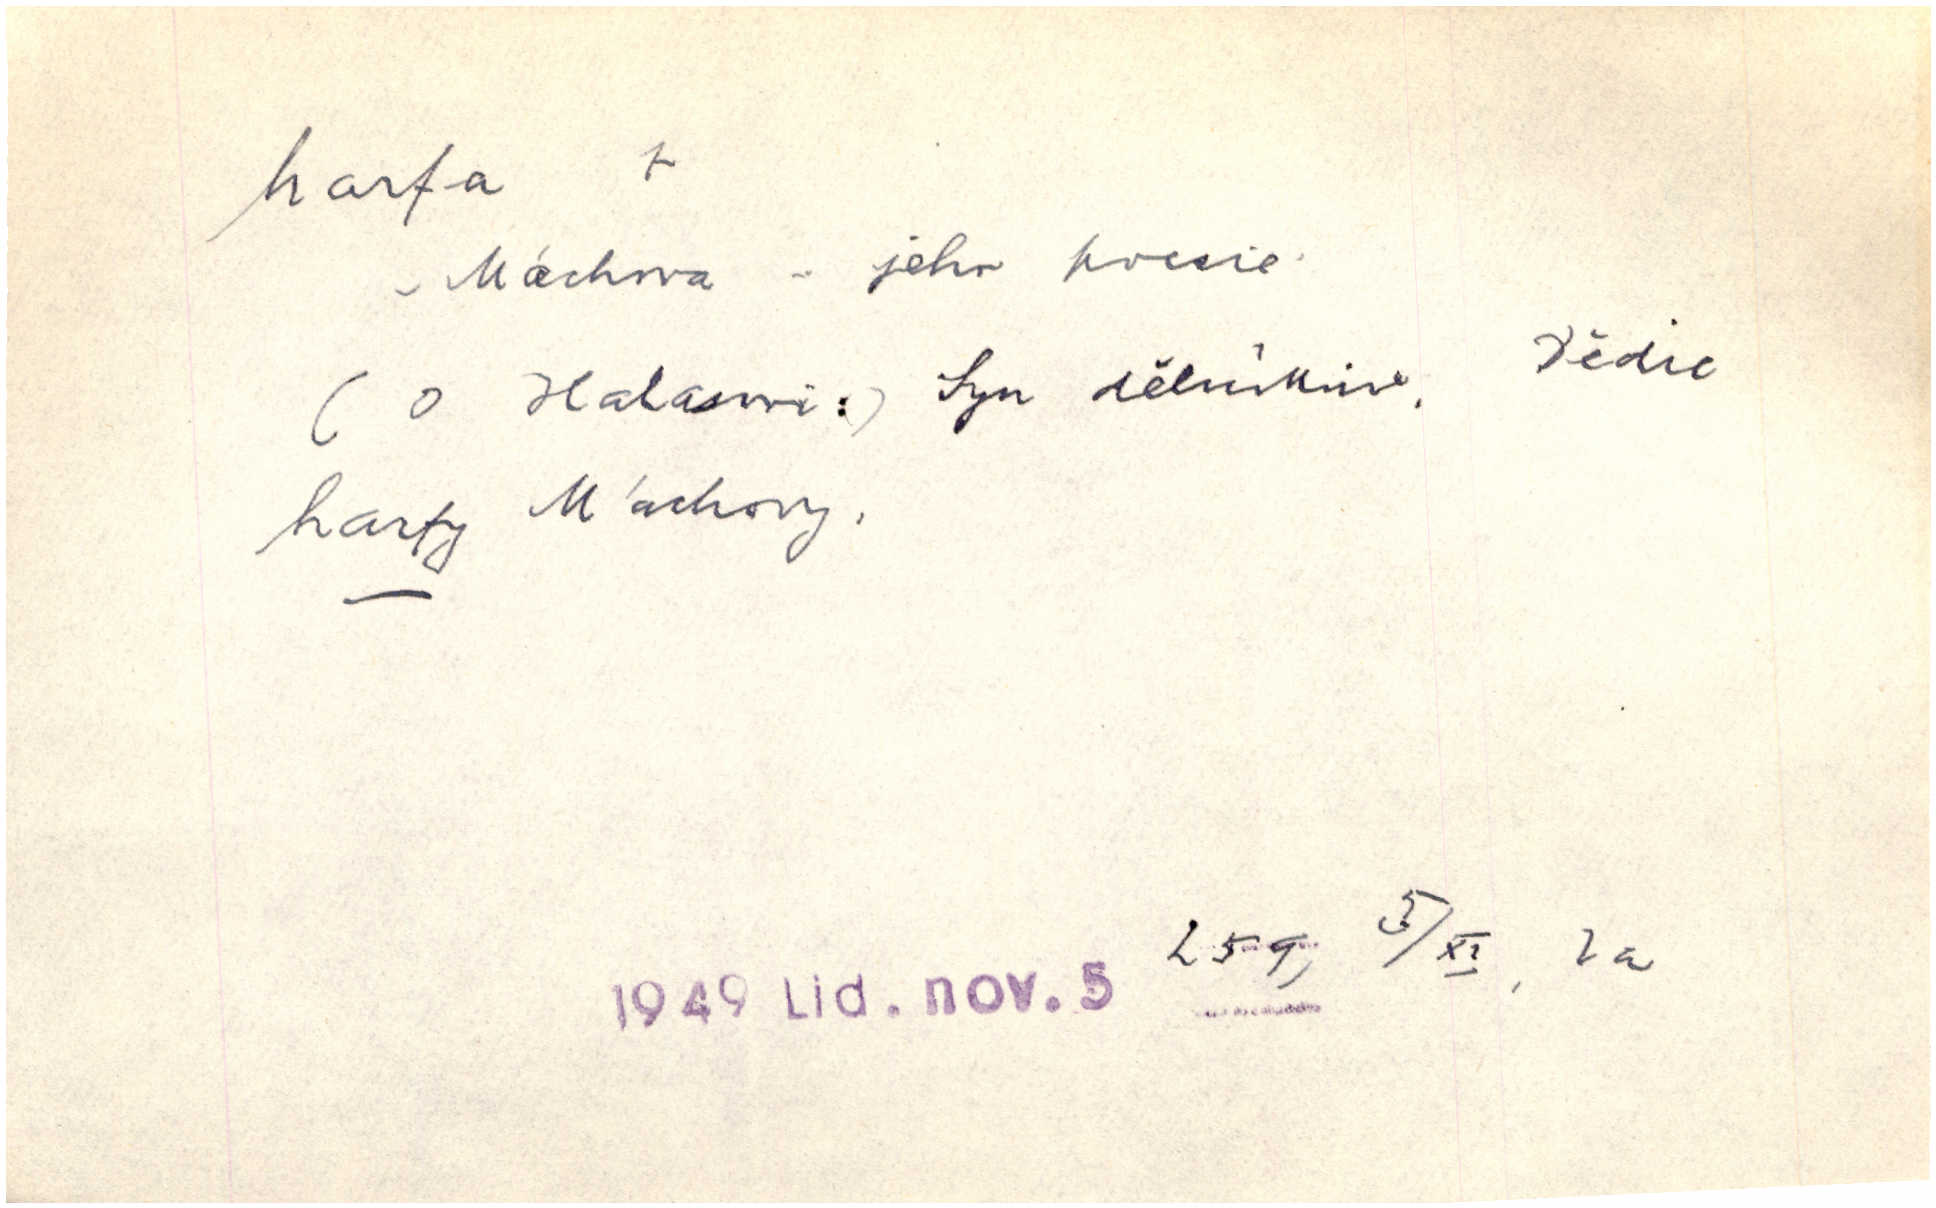 harfa +
- Máchova - jeho poesie.
( O Halasovi:) Syn dělníkův. Dědic
harfy Máchovy.
1949 Lid. nov. 5 259, 5/XI, 2a